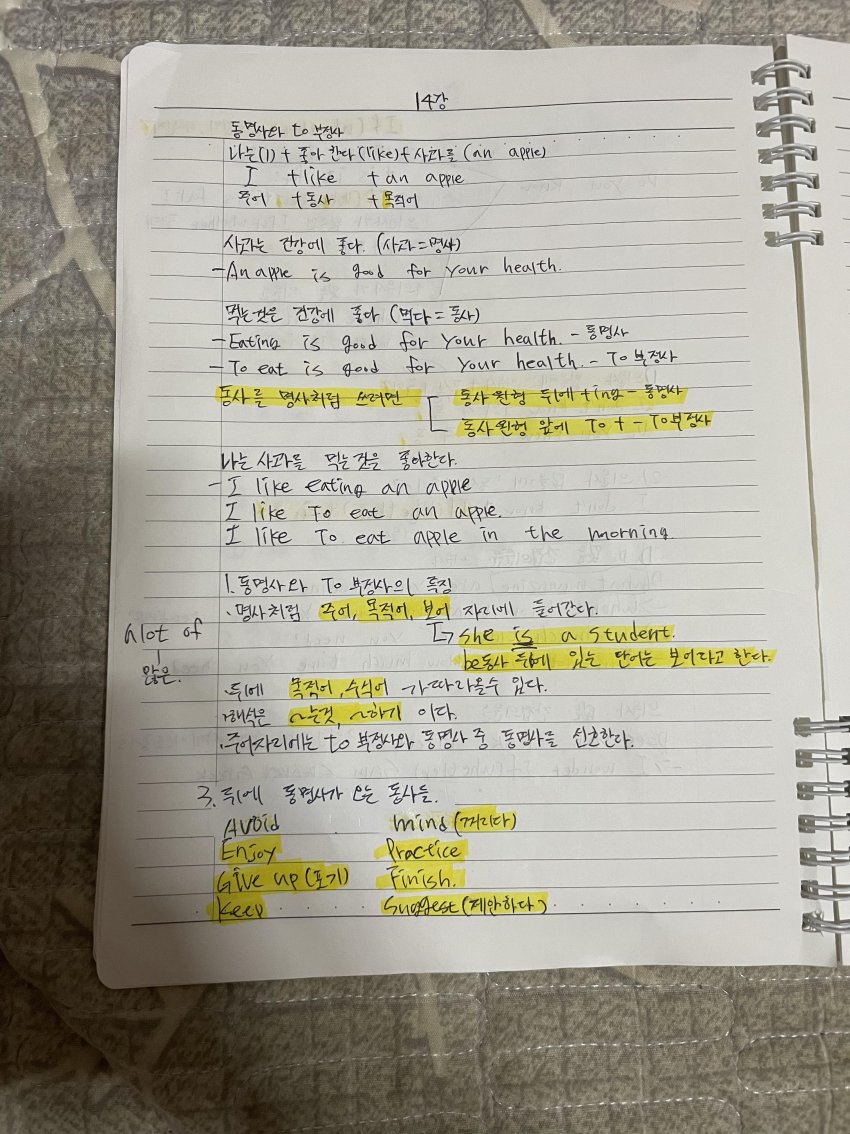 14강
동명사와 to 부정사
나는(I) + 좋아 한다(like)+ 사과를 (an apple)
I +like + an apple
주어 +동사 +목적어
사과는 건강에 좋다. (사과=명사)
-An apple is good for your health.
먹는것은 건강에 좋다 (먹다=동사)
-Eating is good for your health. - 동명사
-To eat is good for your health. - To 부정사
동사를 명사처럼 쓰려면
동사원형 뒤에 +ing - 동명사
동사원형 앞에 To + - To부정사
나는 사과를 먹는것은 좋아한다.
-I like eating an apple
I like To eat an apple.
I like To eat apple in the morning.
1. 동명사와 To 부정사의 특징
·명사처럼 주어, 목적어, 보어 자리에 들어간다.
she is a student.
be동사 뒤에 있는 단어는 보어라고 한다.
alot of
많은.
·뒤에 목적어, 수식어 가 따라올수 있다.
·해석은 ~는것, ~하기 이다.
·주어자리에는 to 부정사와 동명사 중 동명사를 선호한다.
3. 뒤에 동명사가 오는 동사들.
Avoid mind(꺼리다)
Enjoy Practice
Give up (포기) Finish.
keep Suggest(제안하다)